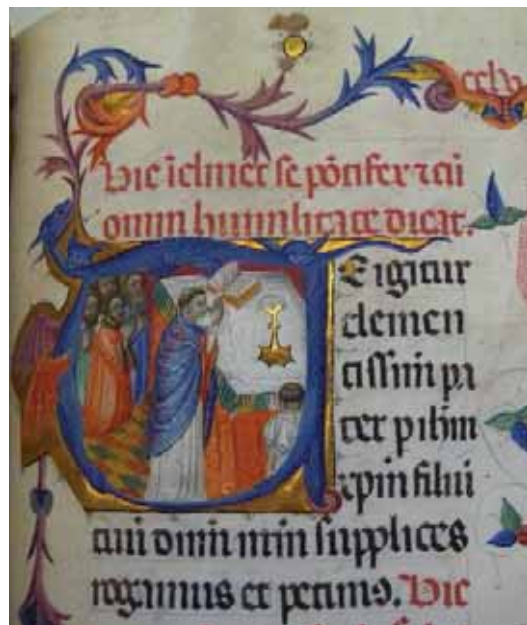 cclv
Hic īclinet se pōtifex ⁊ cū
omni humilitate dicat.
TE igitur
clemen
tissim pa
ter p ihm
xpm filiu
tuū dominū nrm supplices
rogamus et petimꝰ. Hic